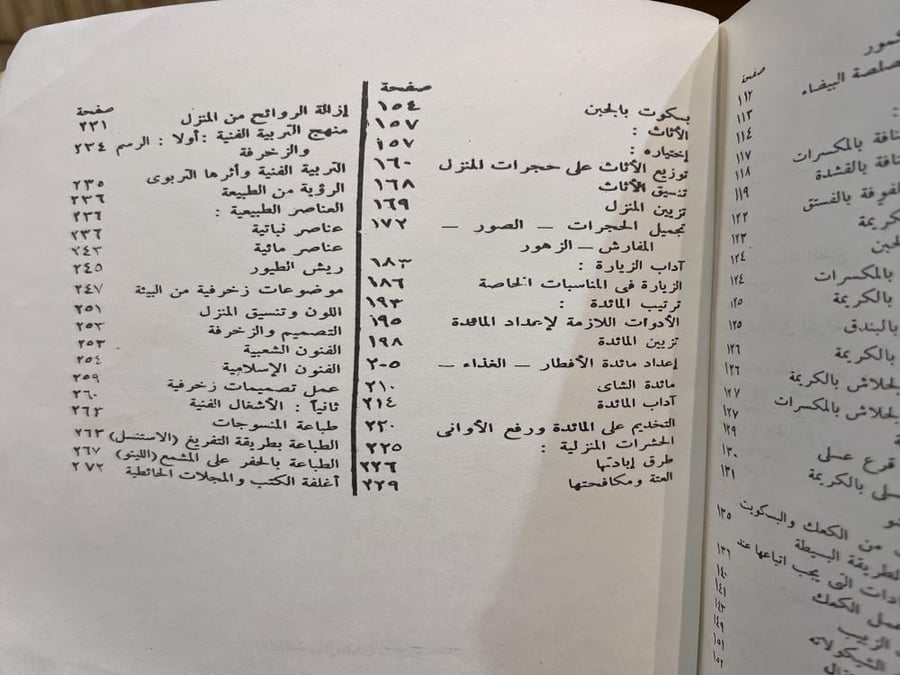 شمور
صفحة
صلصة البيضاء ١١٢
١١٣
: ١١٤
بالمكسرات ١١٧
بالقشدة ١١٨
بالفستق ١١٩
كريمة ١٢٢
١٢٣
١٢٤
بالمكسرات ١٢٤
بالكريمة ١٢٥
بالبندق ١٢٥
بالكريمة ١٢٦
الجلاش بالكريمة ١٢٦
الجلاش بالمكسرات ١٢٧
١٢٧
قرع عسلى ١٢٩
بالكريمة ١٣٠
١٣١
من الكعك والبسكويت
الطريقة البسيطة ١٣٥
التى يجب اتباعها عند ١٣٦
الكعك ١٤٠
١٤١
الزبيب ١٤٣
١٤٩
الشيكولاته ١٥١
١٥٢
صفحة
بسكوت بالجبن ١٥٤
الأثاث : ١٥٧
إختياره : ١٥٧
توزيع الأثاث على حجرات المنزل ١٦٠
تنسيق الأثاث ١٦٨
تزيين المنزل ١٦٩
تجميل الحجرات – الصور – ١٧٢
المفارش – الزهور
آداب الزيارة : ١٨٣
الزيارة فى المناسبات الخاصة ١٨٦
ترتيب المائدة : ١٩٣
الأدوات اللازمة لإعداد المائدة ١٩٥
تزيين المائدة ١٩٨
إعداد مائدة الأفطار – الغذاء – ٢٠٥
مائدة الشاى ٢١٠
آداب المائدة ٢١٤
التخديم على المائدة ورفع الأوانى ٢٢٠
الحشرات المنزلية : ٢٢٥
طرق إبادتها ٢٢٦
العتة ومكافحتها ٢٢٩
صفحة
إزالة الروائح من المنزل ٢٣١
منهج التربية الفنية : أولا : الرسم ٢٣٤
والزخرفة
التربية الفنية وأثرها التربوى ٢٣٥
الرؤية من الطبيعة ٢٣٦
العناصر الطبيعية : ٢٣٦
عناصر نباتية ٢٣٦
عناصر مائية ٢٤٣
ريش الطيور ٢٤٥
موضوعات زخرفية من البيئة ٢٤٧
اللون وتنسيق المنزل ٢٥١
التصميم والزخرفة ٢٥٣
الفنون الشعبية ٢٥٣
الفنون الإسلامية ٢٥٤
عمل تصميمات زخرفية ٢٥٩
ثانياً : الأشغال الفنية ٢٦٠
طباعة المنسوجات ٢٦٣
الطباعة بطريقة التفريغ (الاستنسل) ٢٦٣
الطباعة بالحفر على المشمع (اللينو) ٢٦٧
أغلفة الكتب والمجلات الحائطية ٢٧٢